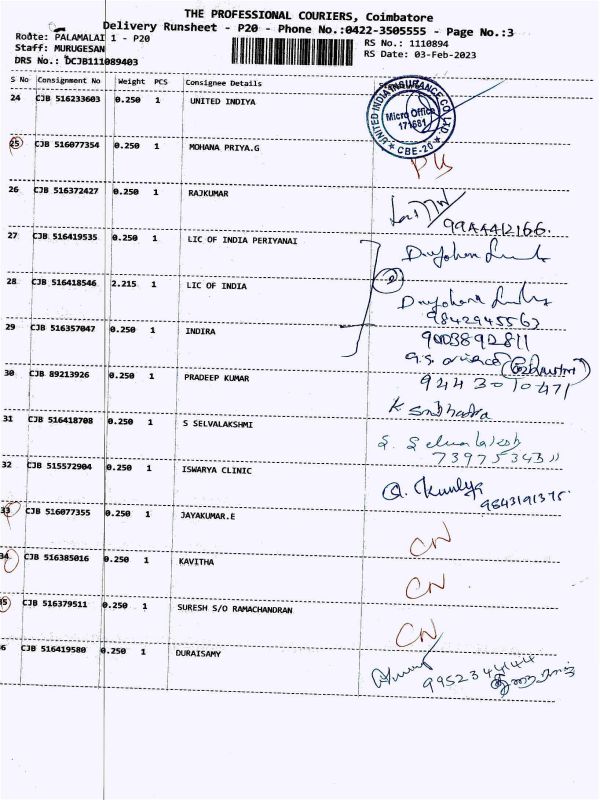 THE PROFESSIONAL COURIERS, Coimbatore
Delivery Runsheet - P20 - Phone No.:0422-3505555 - Page No.:3
Route: PALAMALAI 1 - P20
Staff: MURUGESAN
DRS No.: DCJB111089403
RS No.: 1110894
RS Date: 03-Feb-2023
S No Consignment No Weight PCS Consignee Details
24 CJB 516233603 0.250 1 UNITED INDIYA
UNITED INDIA INSURANCE CO. LTD.
Micro Office
171681
CBE-20
25 CJB 516077354 0.250 1 MOHANA PRIYA.G
26 CJB 516372427 0.250 1 RAJKUMAR
9944412166
27 CJB 516419535 0.250 1 LIC OF INDIA PERIYANAI
28 CJB 516418546 2.215 1 LIC OF INDIA
9842945563
29 CJB 516357047 0.250 1 INDIRA
9003892811
30 CJB 89213926 0.250 1 PRADEEP KUMAR
9443010471
31 CJB 516418708 0.250 1 S SELVALAKSHMI
32 CJB 515572904 0.250 1 ISWARYA CLINIC
9843191375
33 CJB 516077355 0.250 1 JAYAKUMAR.E
CN
34 CJB 516385016 0.250 1 KAVITHA
CN
35 CJB 516379511 0.250 1 SURESH S/O RAMACHANDRAN
CN
6 CJB 516419580 0.250 1 DURAISAMY
9952344144